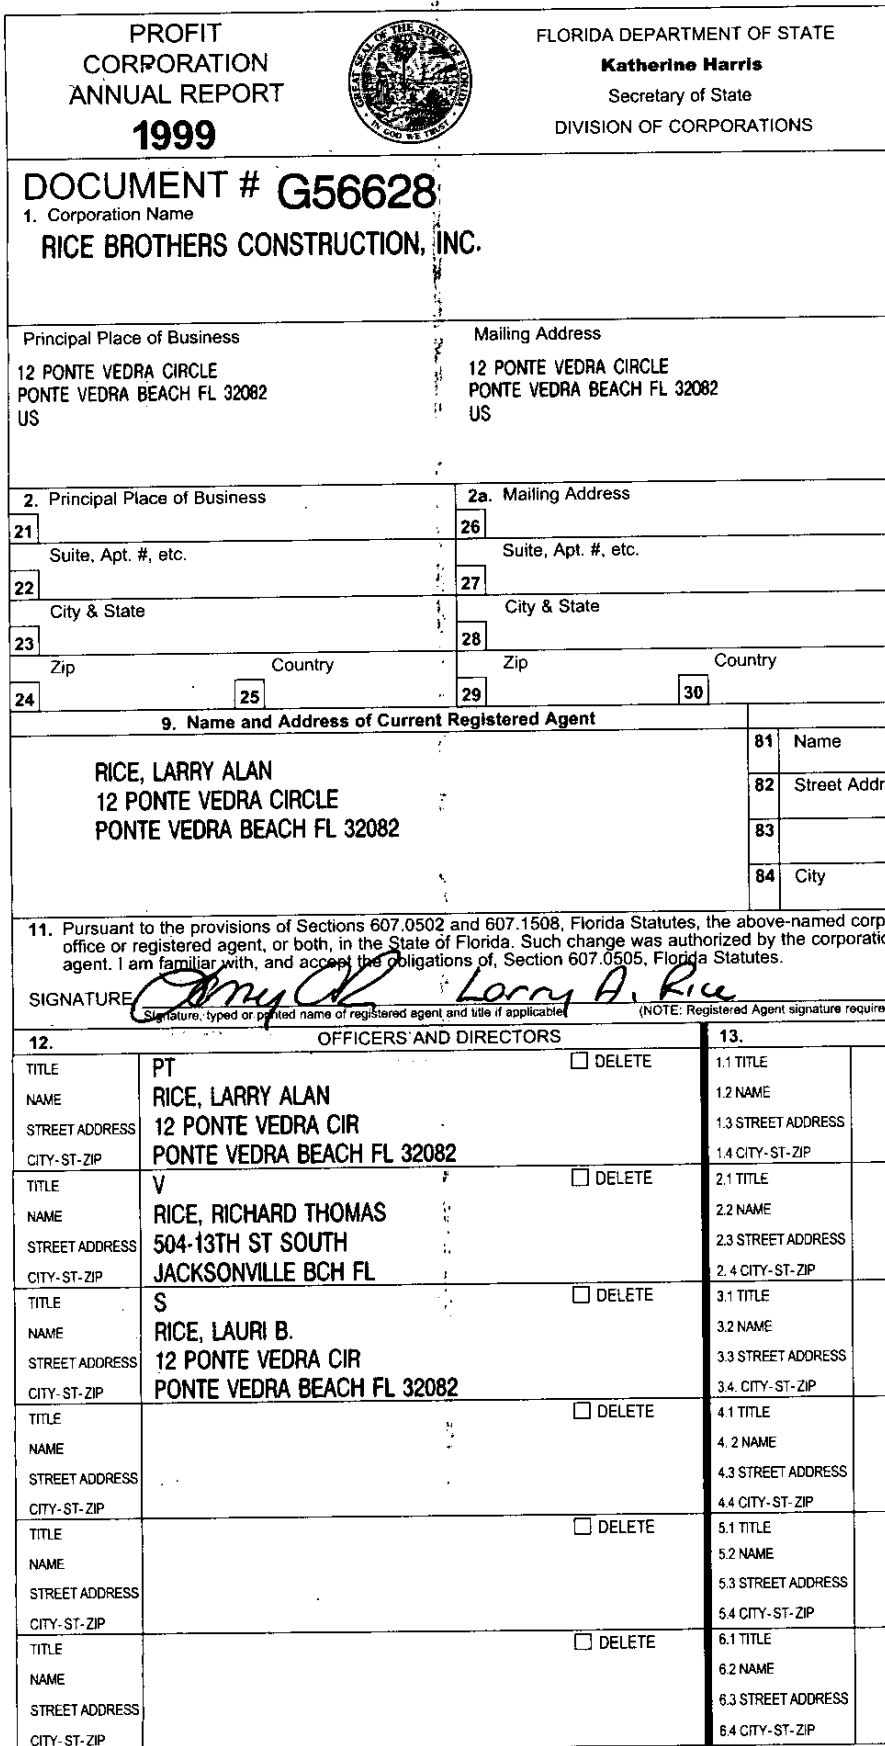 PROFIT
CORPORATION
ANNUAL REPORT
1999
GREAT SEAL OF THE STATE OF FLORIDA
IN GOD WE TRUST
FLORIDA DEPARTMENT OF STATE
Katherine Harris
Secretary of State
DIVISION OF CORPORATIONS
DOCUMENT # G56628
1. Corporation Name
RICE BROTHERS CONSTRUCTION, INC.
Principal Place of Business
12 PONTE VEDRA CIRCLE
PONTE VEDRA BEACH FL 32082
US
Mailing Address
12 PONTE VEDRA CIRCLE
PONTE VEDRA BEACH FL 32082
US
2. Principal Place of Business
21
Suite, Apt. #, etc.
22
City & State
23
Zip Country
24 25
2a. Mailing Address
26
Suite, Apt. #, etc.
27
City & State
28
Zip Country
29 30
9. Name and Address of Current Registered Agent
RICE, LARRY ALAN
12 PONTE VEDRA CIRCLE
PONTE VEDRA BEACH FL 32082
81 Name
82 Street Addr
83
84 City
11. Pursuant to the provisions of Sections 607.0502 and 607.1508, Florida Statutes, the above-named corp
office or registered agent, or both, in the State of Florida. Such change was authorized by the corporatio
agent. I am familiar with, and accept the obligations of, Section 607.0505, Florida Statutes.
SIGNATURE Larry A. Rice
Signature, typed or printed name of registered agent and title if applicable (NOTE: Registered Agent signature require
12. OFFICERS AND DIRECTORS
TITLE PT DELETE
NAME RICE, LARRY ALAN
STREET ADDRESS 12 PONTE VEDRA CIR
CITY-ST-ZIP PONTE VEDRA BEACH FL 32082
TITLE V DELETE
NAME RICE, RICHARD THOMAS
STREET ADDRESS 504-13TH ST SOUTH
CITY-ST-ZIP JACKSONVILLE BCH FL
TITLE S DELETE
NAME RICE, LAURI B.
STREET ADDRESS 12 PONTE VEDRA CIR
CITY-ST-ZIP PONTE VEDRA BEACH FL 32082
TITLE DELETE
NAME
STREET ADDRESS
CITY-ST-ZIP
TITLE DELETE
NAME
STREET ADDRESS
CITY-ST-ZIP
TITLE DELETE
NAME
STREET ADDRESS
CITY-ST-ZIP
13.
1.1 TITLE
1.2 NAME
1.3 STREET ADDRESS
1.4 CITY-ST-ZIP
2.1 TITLE
2.2 NAME
2.3 STREET ADDRESS
2. 4 CITY-ST-ZIP
3.1 TITLE
3.2 NAME
3.3 STREET ADDRESS
3.4. CITY-ST-ZIP
4.1 TITLE
4. 2 NAME
4.3 STREET ADDRESS
4.4 CITY-ST-ZIP
5.1 TITLE
5.2 NAME
5.3 STREET ADDRESS
5.4 CITY-ST-ZIP
6.1 TITLE
6.2 NAME
6.3 STREET ADDRESS
6.4 CITY-ST-ZIP